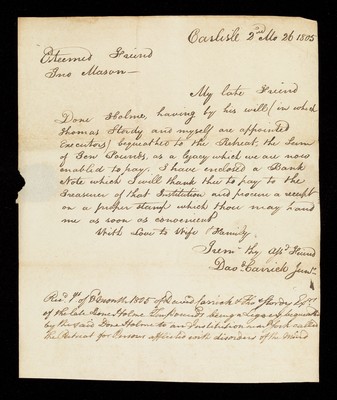 Carlisle 2nd Mo 26 1805
Esteemed Friend
Jno Mason—
My late Friend
Done Holme, having by his will (in which
Thomas Stordy and myself are appointed
Executors) bequeathed to the Retreat, the Sum
of Ten Pounds, as a legacy which we are now
enabled to pay. I have enclosed a Bank
Note which I will thank thee to pay to the
Treasurer of that Institution and procure a receipt
on a proper stamp which thou may hand
me as soon as convenient
With Love to Wife & Family
I rem thy aff Friend
Davd Carrick Junr.
Recd of month 1805 of David Carrick & Tho Stordy Exrs
of the late Done Holme Ten pounds being a Legacy bequeathed
by the said Done Holme to an Institution near York called
the Retreat for Persons afflicted with disorders of the Mind